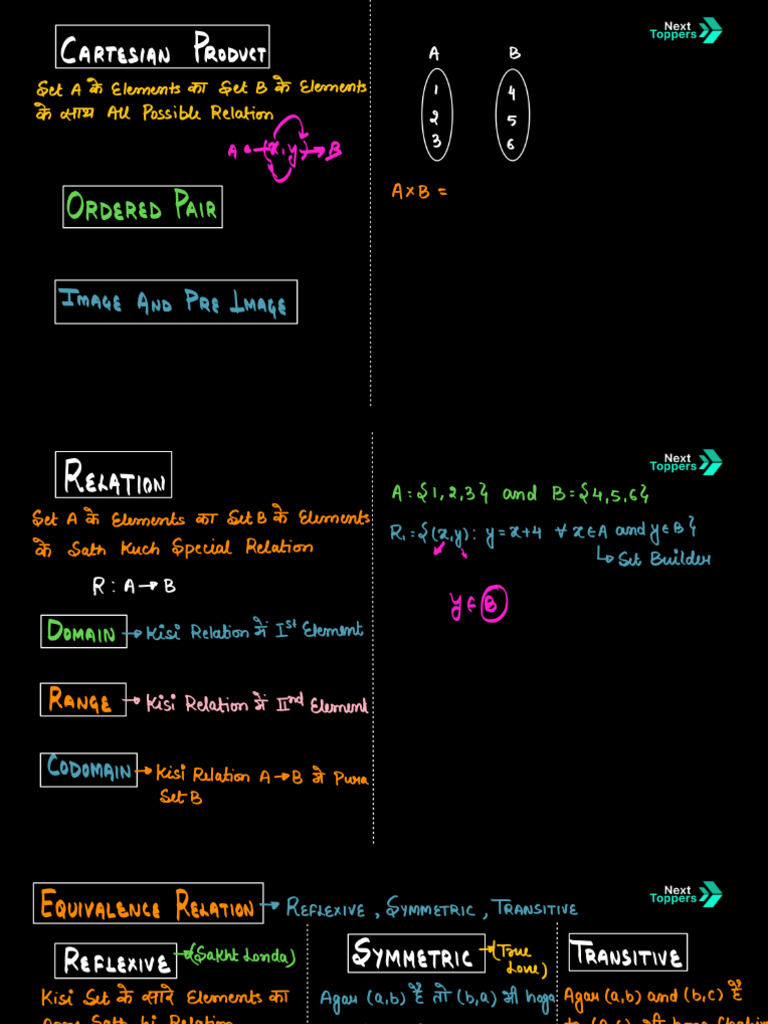 CARTESIAN PRODUCT
Set A के Elements का Set B के Elements
के साथ All Possible Relation
A ← (x, y) → B
ORDERED PAIR
IMAGE AND PRE IMAGE
Next
Toppers
A B
1 4
2 5
3 6
A×B =
RELATION
Set A के Elements का Set B के Elements
के Sath Kuch Special Relation
R : A → B
DOMAIN → Kisi Relation में Ist Element
RANGE → Kisi Relation में IInd Element
CODOMAIN → Kisi Relation A → B में Pura
Set B
Next
Toppers
A = {1, 2, 3} and B = {4, 5, 6}
R₁ = {(x, y) : y = x+4 ∀ x ∈ A and y ∈ B}
↳ Set Builder
y ∈ B
EQUIVALENCE RELATION → REFLEXIVE, SYMMETRIC, TRANSITIVE
Next
Toppers
REFLEXIVE → (Sakht Londa)
Kisi Set के सारे Elements का
SYMMETRIC → (True
Love)
Agar (a,b) है तो (b,a) भी hoga
TRANSITIVE
Agar (a,b) and (b,c) है